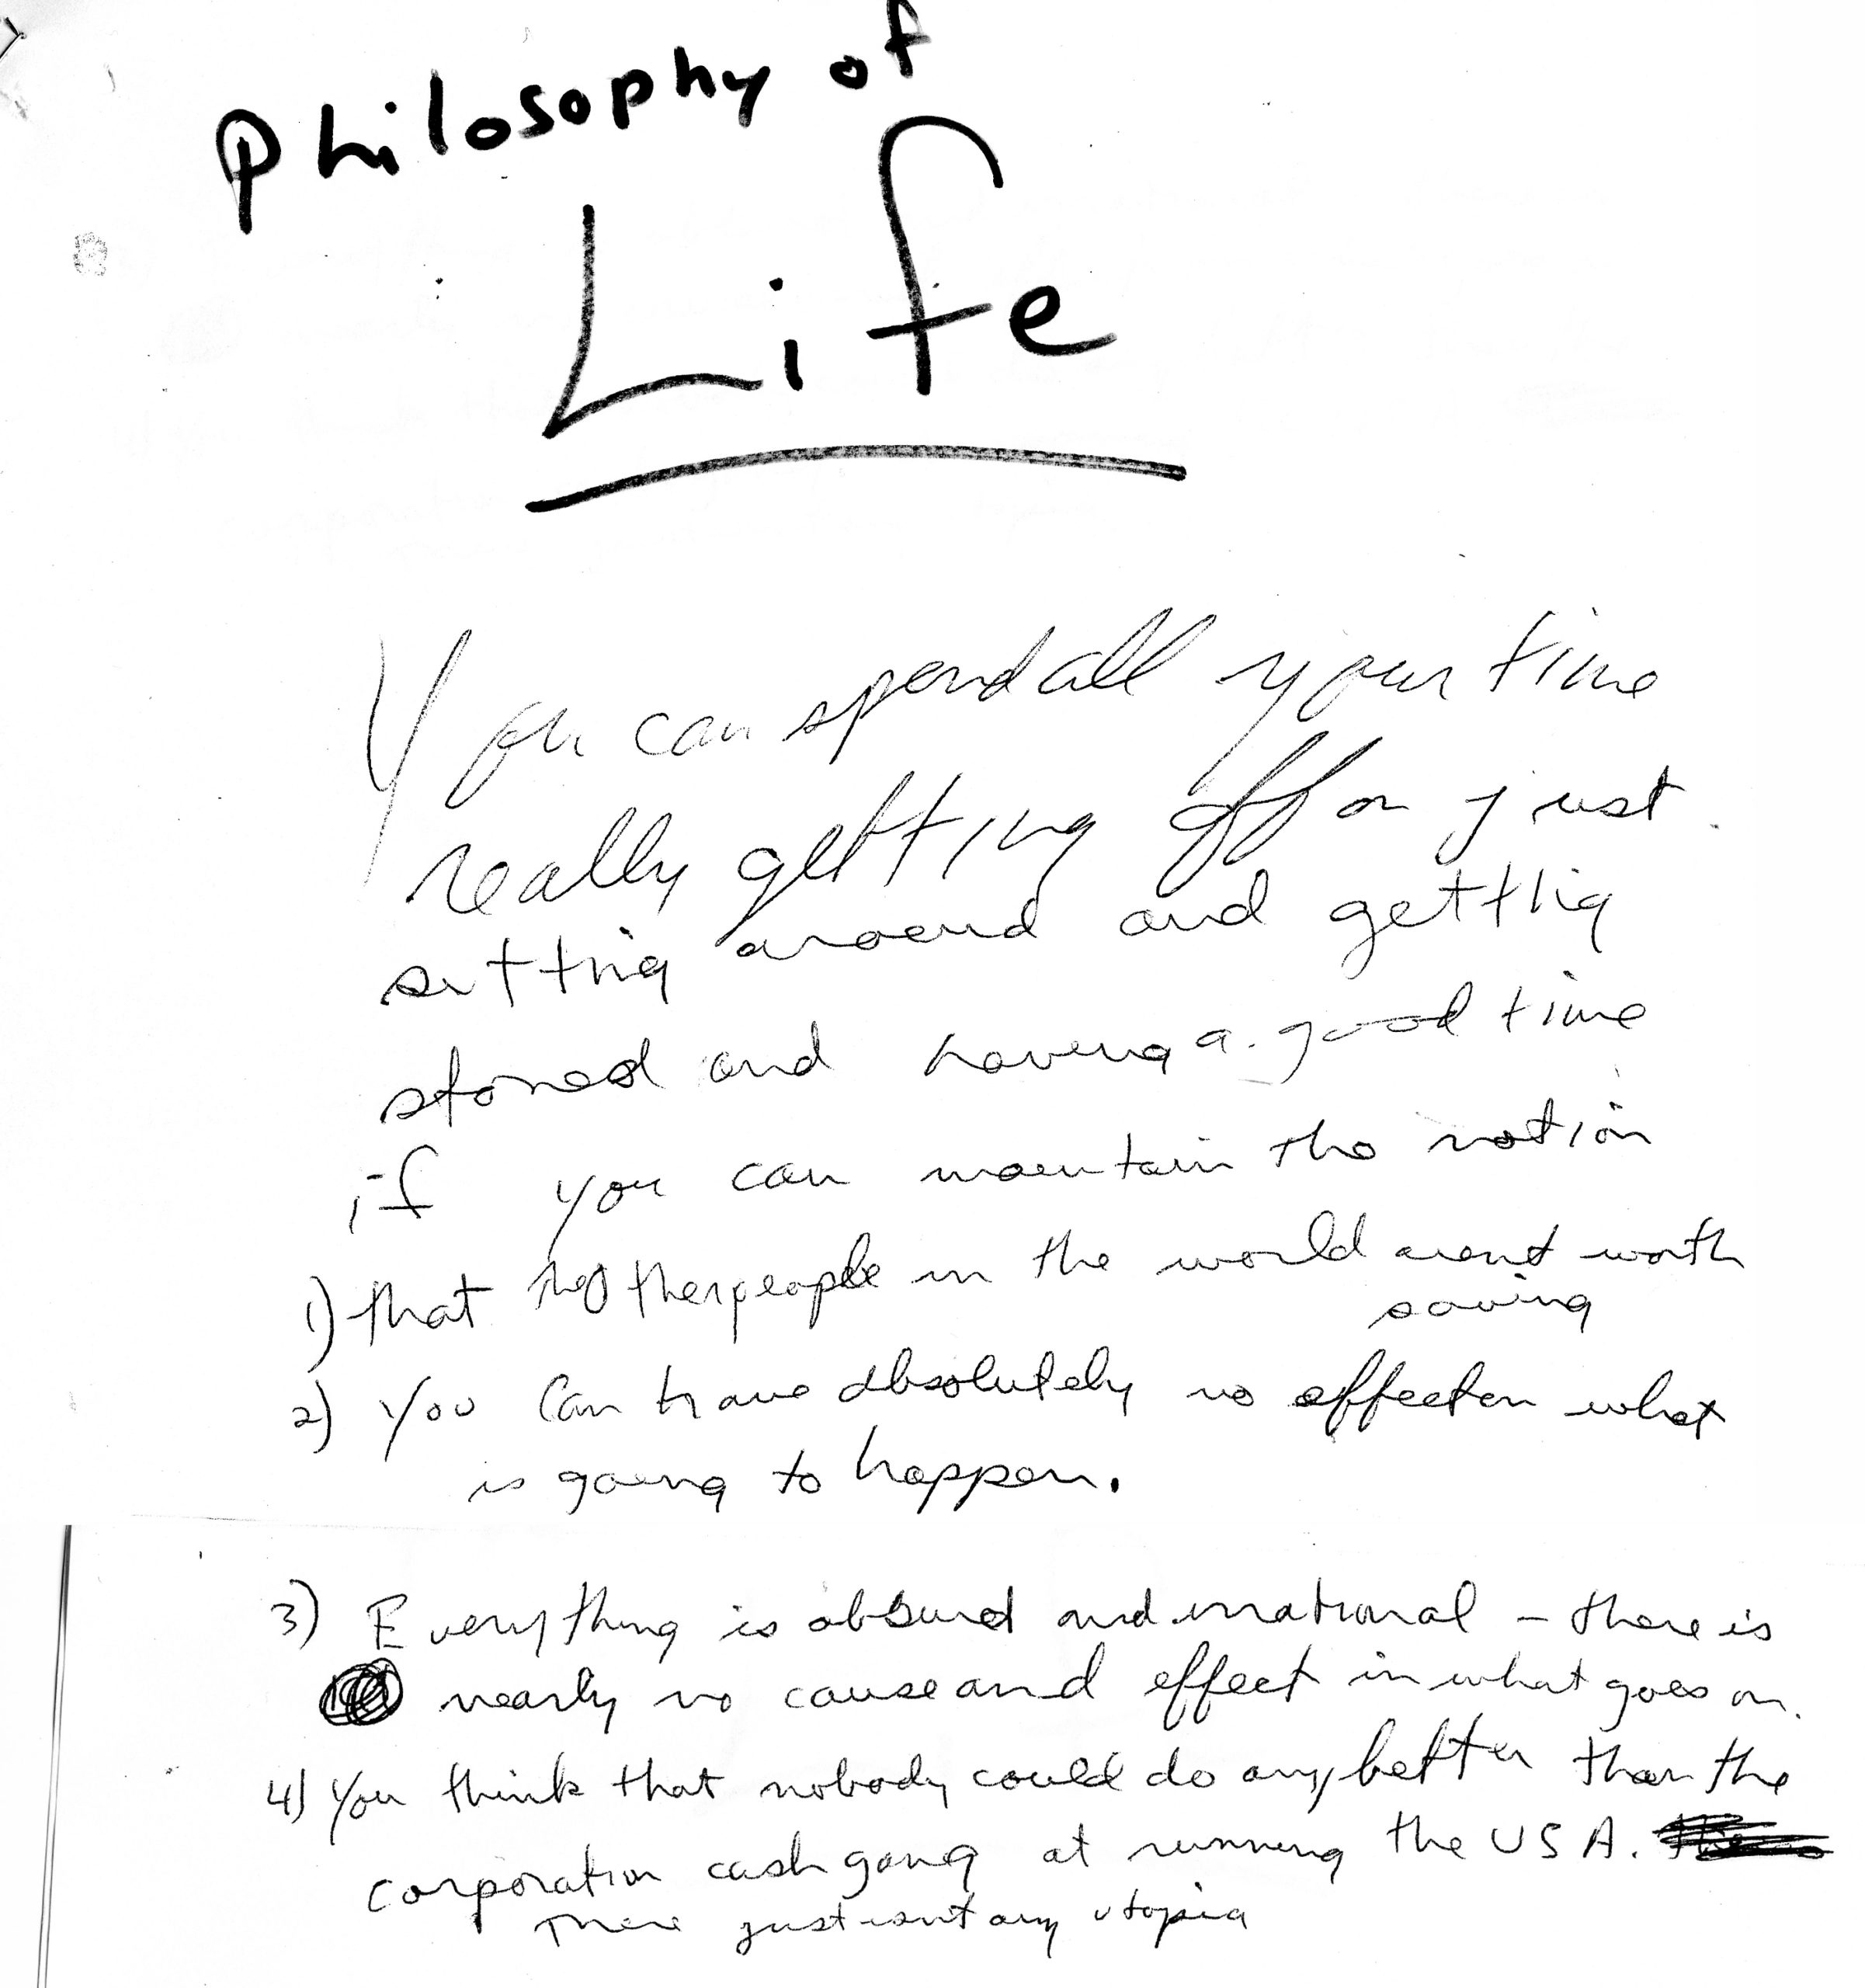 Philosophy of
Life
You can spend all your time
really getting off on just
sitting around and getting
stoned and having a good time
if you can maintain the notion
1) that the other people in the world arent worth
saving
2) You can have absolutely no effect on what
is going to happen.
3) Everything is absurd and irrational – there is
nearly no cause and effect in what goes on.
4) You think that nobody could do any better than the
corporation cash gang at running the USA.
There just isnt any utopia